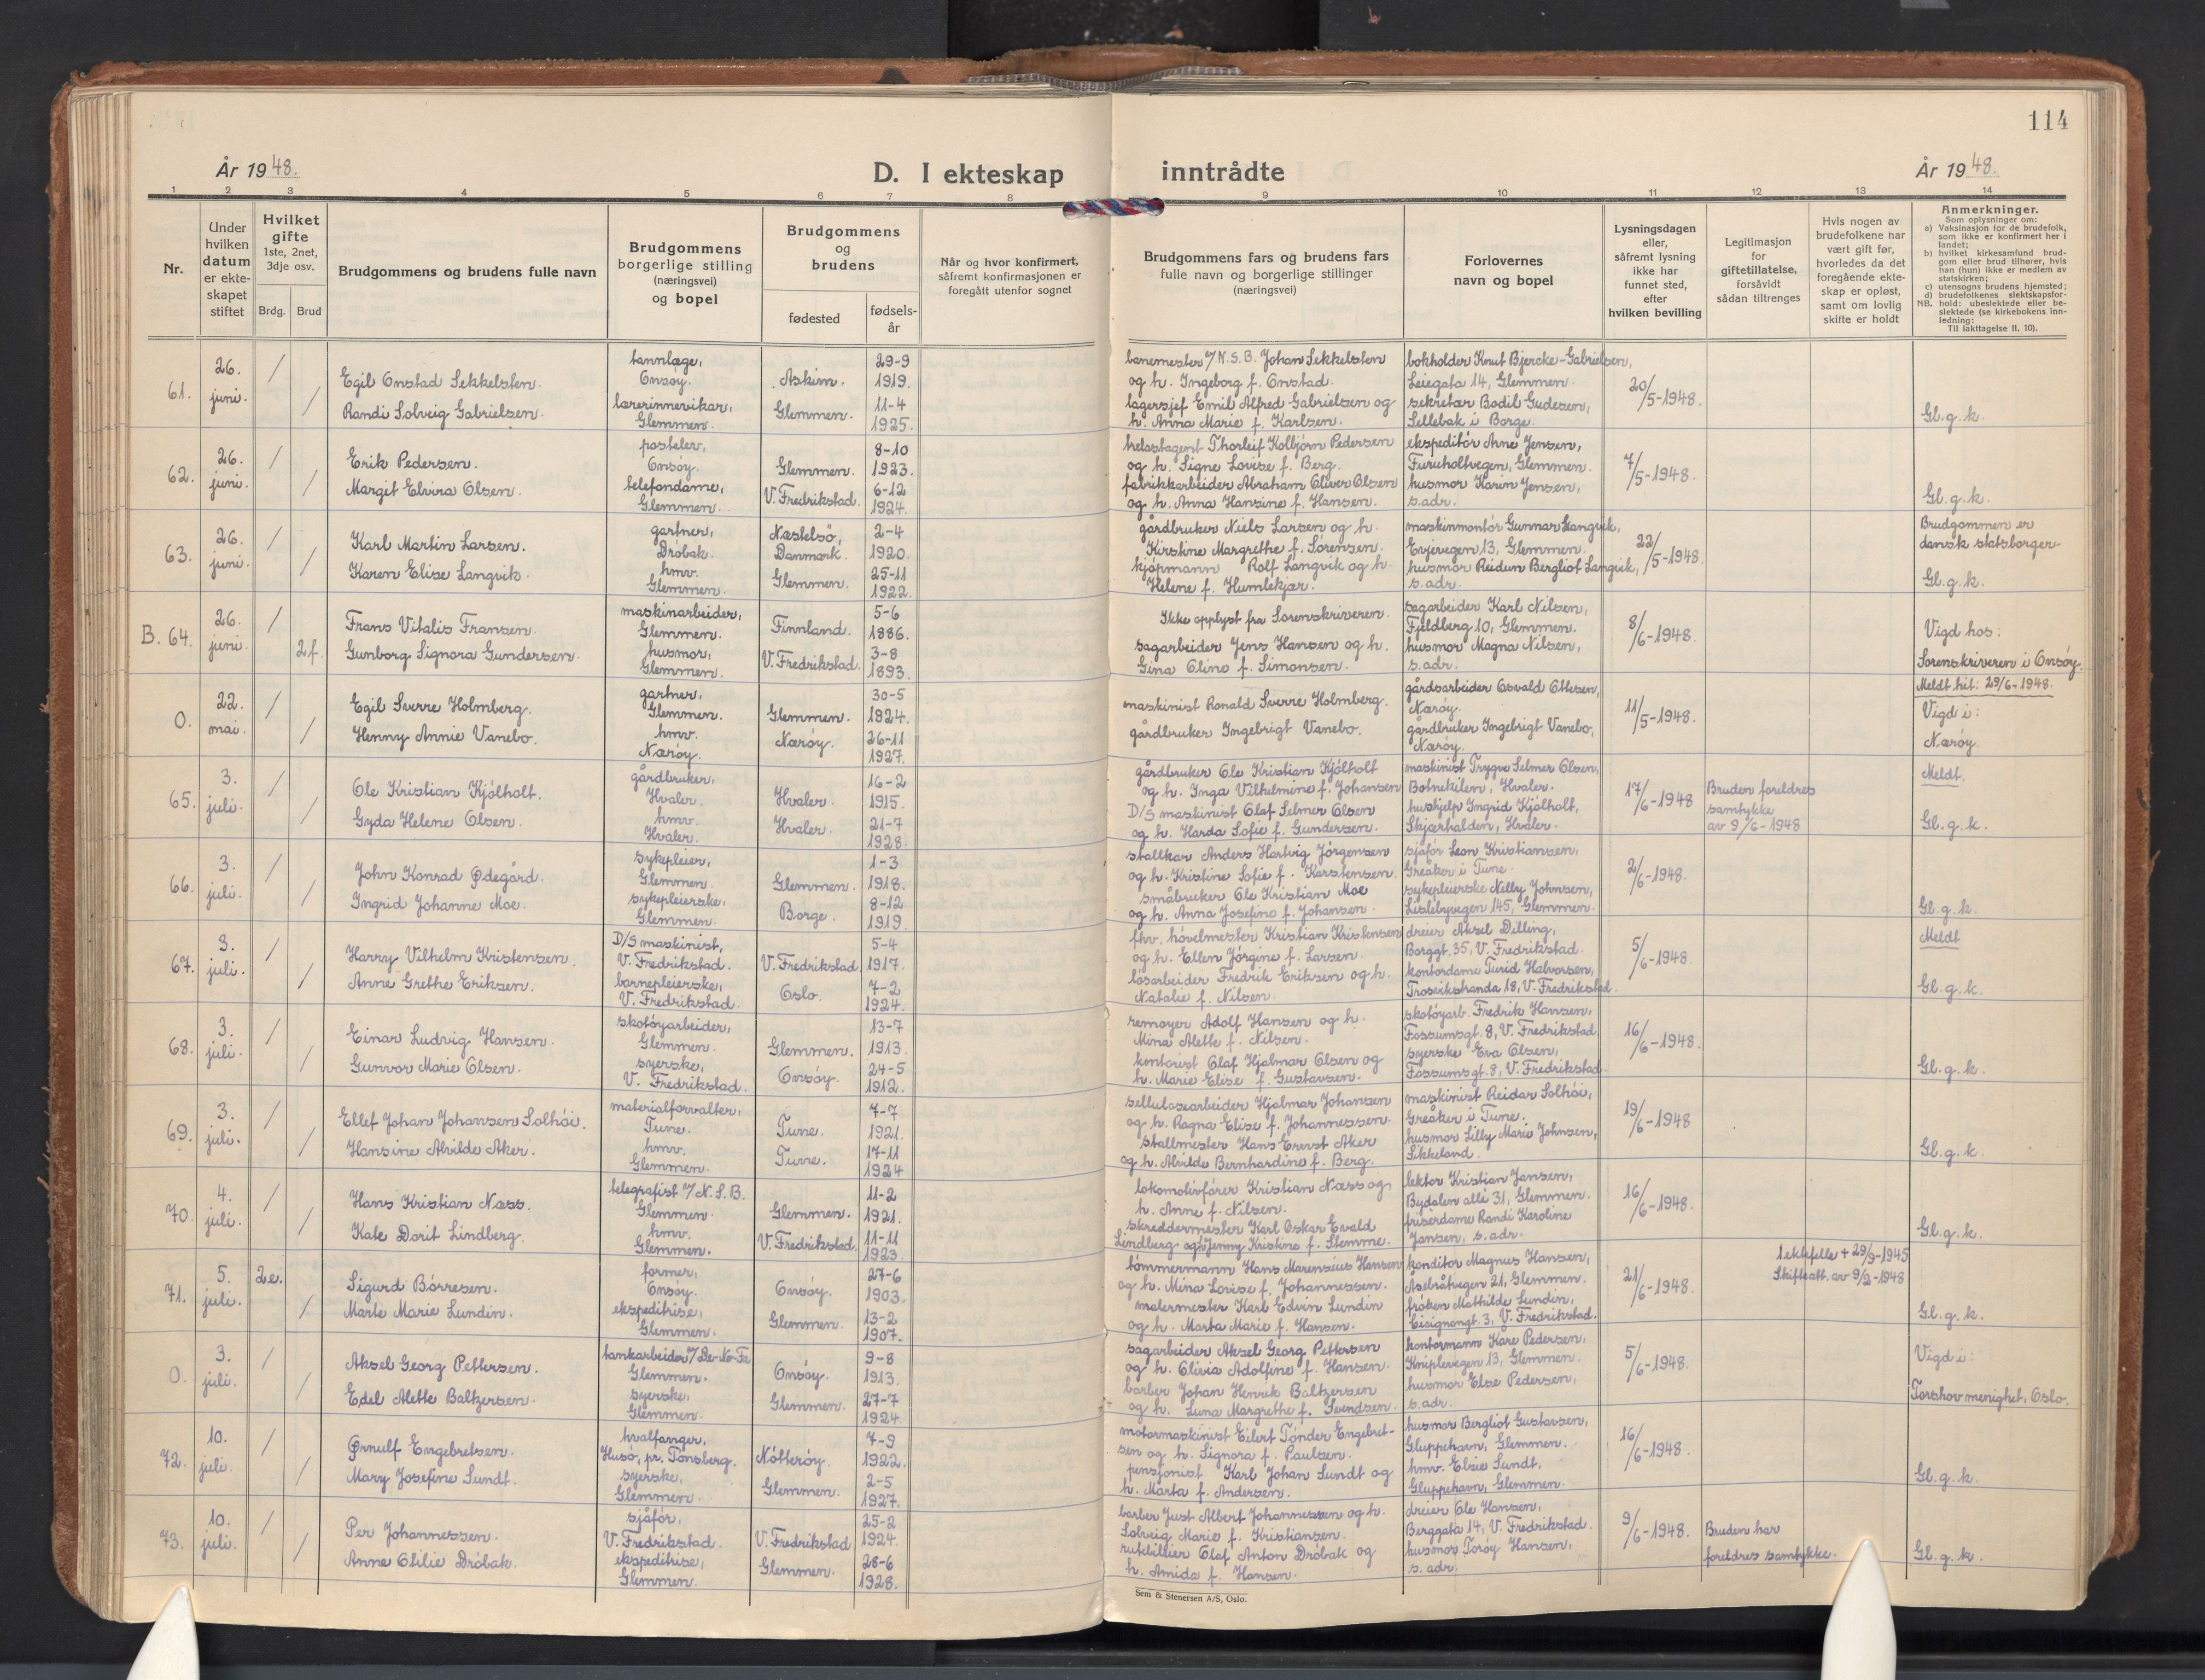 114
År 1948.
D. I ekteskap inntrådte
År 1948.
1 2 3 4 5 6 7 8 9 10 11 12 13 14
Nr.
Under hvilken datum er ekteskapet stiftet
Hvilket gifte 1ste, 2net, 3dje osv.
Brdg. Brud
Brudgommens og brudens fulle navn
Brudgommens borgerlige stilling (næringsvei) og bopel
Brudgommens og brudens
fødested
fødselsår
Når og hvor konfirmert, såfremt konfirmasjonen er foregått utenfor sognet
Brudgommens fars og brudens fars fulle navn og borgerlige stillinger (næringsvei)
Forlovernes navn og bopel
Lysningsdagen eller, såfremt lysning ikke har funnet sted, efter hvilken bevilling
Legitimasjon for giftetillatelse, forsåvidt sådan tiltrenges
Hvis nogen av brudefolkene har vært gift før, hvorledes da det foregående ekteskap er opløst, samt om lovlig skifte er holdt
Anmerkninger.
Som oplysninger om:
a) Vaksinasjon for de brudefolk, som ikke er konfirmert her i landet;
b) hvilket kirkesamfund brudgom eller brud tilhører, hvis han (hun) ikke er medlem av statskirken;
c) utensogns brudens hjemsted;
d) brudefolkenes slektskapsforhold: ubeslektede eller beslektede (se kirkebokens innledning:
NB. Til iakttagelse II, 10).
61. 26. juni. / /
Egil Onstad Sekkelsten.
Randi Solveig Gabrielsen.
tannlæge, Onsøy.
lærerinnevikar, Glemmen.
Askim. 29-9 1919.
Glemmen. 11-4 1925.
banemester v/N.S.B. Johan Sekkelsten
og h. Ingeborg f. Onstad.
lagersjef Emil Alfred Gabrielsen og
h. Anna Marie f. Karlsen.
bokholder Knut Bjercke-Gabrielsen,
Leiegata 14, Glemmen.
sekretær Bodil Gudesen,
Sellebak i Borge.
20/5-1948.
Gl. g. k.
62. 26. juni. / /
Erik Pedersen.
Margit Elvira Olsen.
posteler, Onsøy.
telefondame, Glemmen.
Glemmen. 8-10 1923.
V. Fredrikstad. 6-12 1924.
trelastagent Thorleif Kolbjørn Pedersen
og h. Signe Lovise f. Berg.
fabrikkarbeider Abraham Oliver Olsen
og h. Anna Hansine f. Hansen.
ekspeditør Arne Jensen,
Furuholtvegen, Glemmen.
husmor Karin Jensen,
s. adr.
7/5-1948.
Gl. g. k.
63. 26. juni. / /
Karl Martin Larsen.
Karen Elise Langvik.
gartner, Drøbak.
hmv. Glemmen.
Næstelsø, Danmark. 2-4 1920.
Glemmen. 25-11 1922.
gårdbruker Niels Larsen og h.
Kirstine Margrethe f. Sørensen.
kjøpmann Rolf Langvik og h.
Helene f. Humlekjær.
maskinmontør Gunnar Langvik,
Evjevegen 13, Glemmen.
husmor Reidun Bergliot Langvik,
s. adr.
22/5-1948.
Brudgommen er
dansk statsborger.
Gl. g. k.
B. 64. 26. juni. / 2 f.
Frans Vitalis Fransen.
Gunborg Signora Gundersen.
maskinarbeider, Glemmen.
husmor, Glemmen.
Finnland. 5-6 1886.
V. Fredrikstad. 3-8 1893.
Ikke opplyst fra Sorenskriveren.
sagarbeider Jens Hansen og h.
Gina Oline f. Simonsen.
sagarbeider Karl Nilsen,
Fjeldberg 10, Glemmen.
husmor Magna Nilsen,
s. adr.
8/6-1948.
Vigd hos:
Sorenskriveren i Onsøy.
Meldt hit: 29/6-1948.
O. 22. mai. / /
Egil Sverre Holmberg.
Henny Annie Vanebo.
gartner, Glemmen.
hmv. Nærøy.
Glemmen. 30-5 1924.
Nærøy. 26-11 1927.
maskinist Ronald Sverre Holmberg.
gårdbruker Ingebrigt Vanebo.
gårdsarbeider Osvald Ottesen,
Nærøy.
gårdbruker Ingebrigt Vanebo,
Nærøy.
11/5-1948.
Vigd i:
Nærøy.
65. 3. juli. / /
Ole Kristian Kjølholt.
Gyda Helene Olsen.
gårdbruker, Hvaler.
hmv. Hvaler.
Hvaler. 16-2 1915.
Hvaler. 21-7 1928.
gårdbruker Ole Kristian Kjølholt
og h. Inga Vilhelmine f. Johansen
D/S maskinist Olaf Selmer Olsen
og h. Harda Sofie f. Gundersen.
maskinist Trygve Selmer Olsen,
Botnekilen, Hvaler.
hushjelp Ingrid Kjølholt,
Skjærhalden, Hvaler.
17/6-1948
Bruden foreldres
samtykke
av 9/6-1948
Meldt.
Gl. g. k.
66. 3. juli. / /
John Konrad Ødegård.
Ingrid Johanne Moe.
sykepleier, Glemmen.
sykepleierske, Glemmen.
Glemmen. 1-3 1918.
Borge. 8-12 1919
stallkar Anders Hartvig Jørgensen
og h. Kristine Sofie f. Karstensen.
småbruker Ole Kristian Moe
og h. Anna Josefine f. Johansen.
sjåfør Leon Kristiansen,
Greåker i Tune.
sykepleierske Nelly Johnsen,
Lislebyvegen 145, Glemmen.
2/6-1948.
Gl. g. k.
67. 3. juli. / /
Harry Vilhelm Kristensen.
Anne Grethe Eriksen.
D/S maskinist, V. Fredrikstad.
barnepleierske, V. Fredrikstad.
V. Fredrikstad 5-4 1917.
Oslo. 7-2 1924.
fhv. høvelmester Kristian Kristensen
og h. Ellen Jørgine f. Larsen.
løsarbeider Fredrik Eriksen og h.
Natalie f. Nilsen.
dreier Aksel Dilling,
Borggt. 35, V. Fredrikstad.
kontordame Turid Halvorsen,
Trosvikstranda 18, V. Fredrikstad.
5/6-1948.
Meldt
Gl. g. k.
68. 3. juli. / /
Einar Ludvig Hansen.
Gunvor Marie Olsen.
skotøyarbeider, Glemmen.
syerske, V. Fredrikstad.
Glemmen. 13-7 1913.
Onsøy. 24-5 1912.
remoyer Adolf Hansen og h.
Mina Alette f. Nilsen.
kontorist Olaf Hjalmar Olsen og
h. Marie Elise f. Gustavsen.
skotøyarb. Fredrik Hansen,
Fossumsgt. 8, V. Fredrikstad.
syerske Eva Olsen,
Fossumsgt. 8, V. Fredrikstad.
16/6-1948.
Gl. g. k.
69. 3. juli. / /
Ellef Johan Johansen Solhøi.
Hansine Alvilde Aker.
materialforvalter, Tune.
hmv. Glemmen.
Tune. 7-7 1921.
Tune. 17-11 1924
sellulosearbeider Hjalmar Johansen
og h. Ragna Elise f. Johannessen.
stallmester Hans Ernst Aker
og h. Alvilde Bernhardine f. Berg.
maskinist Reidar Solhøi,
Greåker i Tune.
husmor Lilly Marie Johnsen,
Sikkeland.
19/6-1948
Gl. g. k.
70. 4. juli. / /
Hans Kristian Næss.
Kate Dorit Lindberg.
telegrafist v/N.S.B. Glemmen.
hmv. Glemmen.
Glemmen. 11-2 1921.
V. Fredrikstad. 11-11 1923.
lokomotivfører Kristian Næss og
h. Anne f. Nilsen.
skreddermester Karl Oskar Evald
Lindberg og h. Jenny Kristine f. Stemme.
lektor Kristian Jansen,
Bydalen allé 31, Glemmen.
frisørdame Randi Karoline
Jansen, s. adr.
16/6-1948.
Gl. g. k.
71. 5. juli. 2 e. /
Sigurd Børresen.
Marte Marie Lundin.
former, Onsøy.
ekspeditrise, Glemmen.
Onsøy. 27-6 1903.
Glemmen. 13-2 1907.
tømmermann Hans Marensius Hansen
og h. Mina Lovise f. Johannessen.
malermester Karl Edvin Lundin
og h. Marta Marie f. Hansen.
konditor Magnus Hansen,
Åsebråtvegen 21, Glemmen.
frøken Mathilde Lundin,
Cicignongt. 3, V. Fredrikstad.
21/6-1948.
1. ektefelle + 29/9-1945
Skifteatt. av 9/2-1948
Gl. g. k.
O. 3. juli. / /
Aksel Georg Pettersen.
Edel Alette Baltzersen.
tankarbeider v/De-No-Fa Glemmen.
syerske, Glemmen.
Onsøy. 9-8 1913.
Glemmen. 27-7 1924.
sagarbeider Aksel Georg Pettersen
og h. Olivia Adolfine f. Hansen.
barber Johan Henrik Baltzersen
og h. Luna Margrethe f. Svendsen.
kontormann Kåre Pedersen,
Kniplevegen 13, Glemmen.
husmor Else Pedersen,
s. adr.
5/6-1948.
Vigd i:
Torshov menighet, Oslo.
72. 10. juli. / /
Ørnulf Engebretsen.
Mary Josefine Sundt.
hvalfanger, Husø, pr. Tønsberg.
syerske, Glemmen.
Nøtterøy. 7-9 1922.
Glemmen. 2-5 1927.
motormaskinist Eilert Tønder Engebret-
sen og h. Signora f. Paulsen.
pensjonist Karl Johan Sundt og
h. Marta f. Andersen.
husmor Bergliot Gustavsen,
Gluppehavn, Glemmen.
hmv. Elsie Sundt,
Gluppehavn, Glemmen.
16/6-1948.
Gl. g. k.
73. 10. juli. / /
Per Johannessen.
Anne Otilie Drøbak.
sjåfør, V. Fredrikstad.
ekspeditrise, Glemmen.
V. Fredrikstad 25-2 1924.
Glemmen. 28-6 1928.
barber Just Albert Johannessen og h.
Solveig Marie f. Kristiansen.
rutebileier Olaf Anton Drøbak og
h. Amida f. Hansen.
dreier Ole Hansen,
Berggata 14, V. Fredrikstad.
husmor Torøy Hansen,
s. adr.
9/6-1948.
Bruden har
foreldres samtykke.
Gl. g. k.
Sem & Stenersen A/S, Oslo.